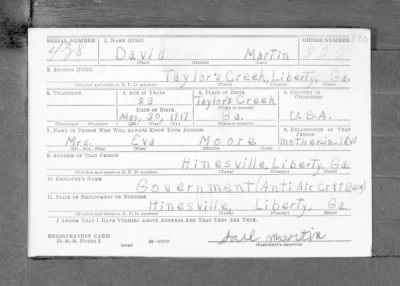 SERIAL NUMBER 1. NAME (Print) ORDER NUMBER
438 David Martin
(First) (Middle) (Last)
2. ADDRESS (Print)
Taylor's Creek, Liberty, Ga.
(Number and street or R. F. D. number) (Town) (County) (State)
3. TELEPHONE 4. AGE IN YEARS 5. PLACE OF BIRTH 6. COUNTRY OF CITIZENSHIP
23 Taylor's Creek
DATE OF BIRTH (Town or county)
May, 20, 1917 Ga. U.S.A.
(Exchange) (Number) (Mo.) (Day) (Yr.) (State or country)
7. NAME OF PERSON WHO WILL ALWAYS KNOW YOUR ADDRESS 8. RELATIONSHIP OF THAT PERSON
Mrs. Eva Moore
(Mr., Mrs., Miss) (First) (Middle) (Last)
9. ADDRESS OF THAT PERSON
Hinesville, Liberty, Ga.
(Number and street or R. F. D. number) (Town) (County) (State)
10. EMPLOYER'S NAME
Government (Anti Air
11. PLACE OF EMPLOYMENT OR BUSINESS
Hinesville, Liberty, Ga.
(Number and street or R. F. D. number) (Town) (County) (State)
I AFFIRM THAT I HAVE VERIFIED ABOVE ANSWERS AND THAT THEY ARE TRUE.
REGISTRATION CARD
D. S. S. FORM 1 (over) martin
(Registrant's signature)